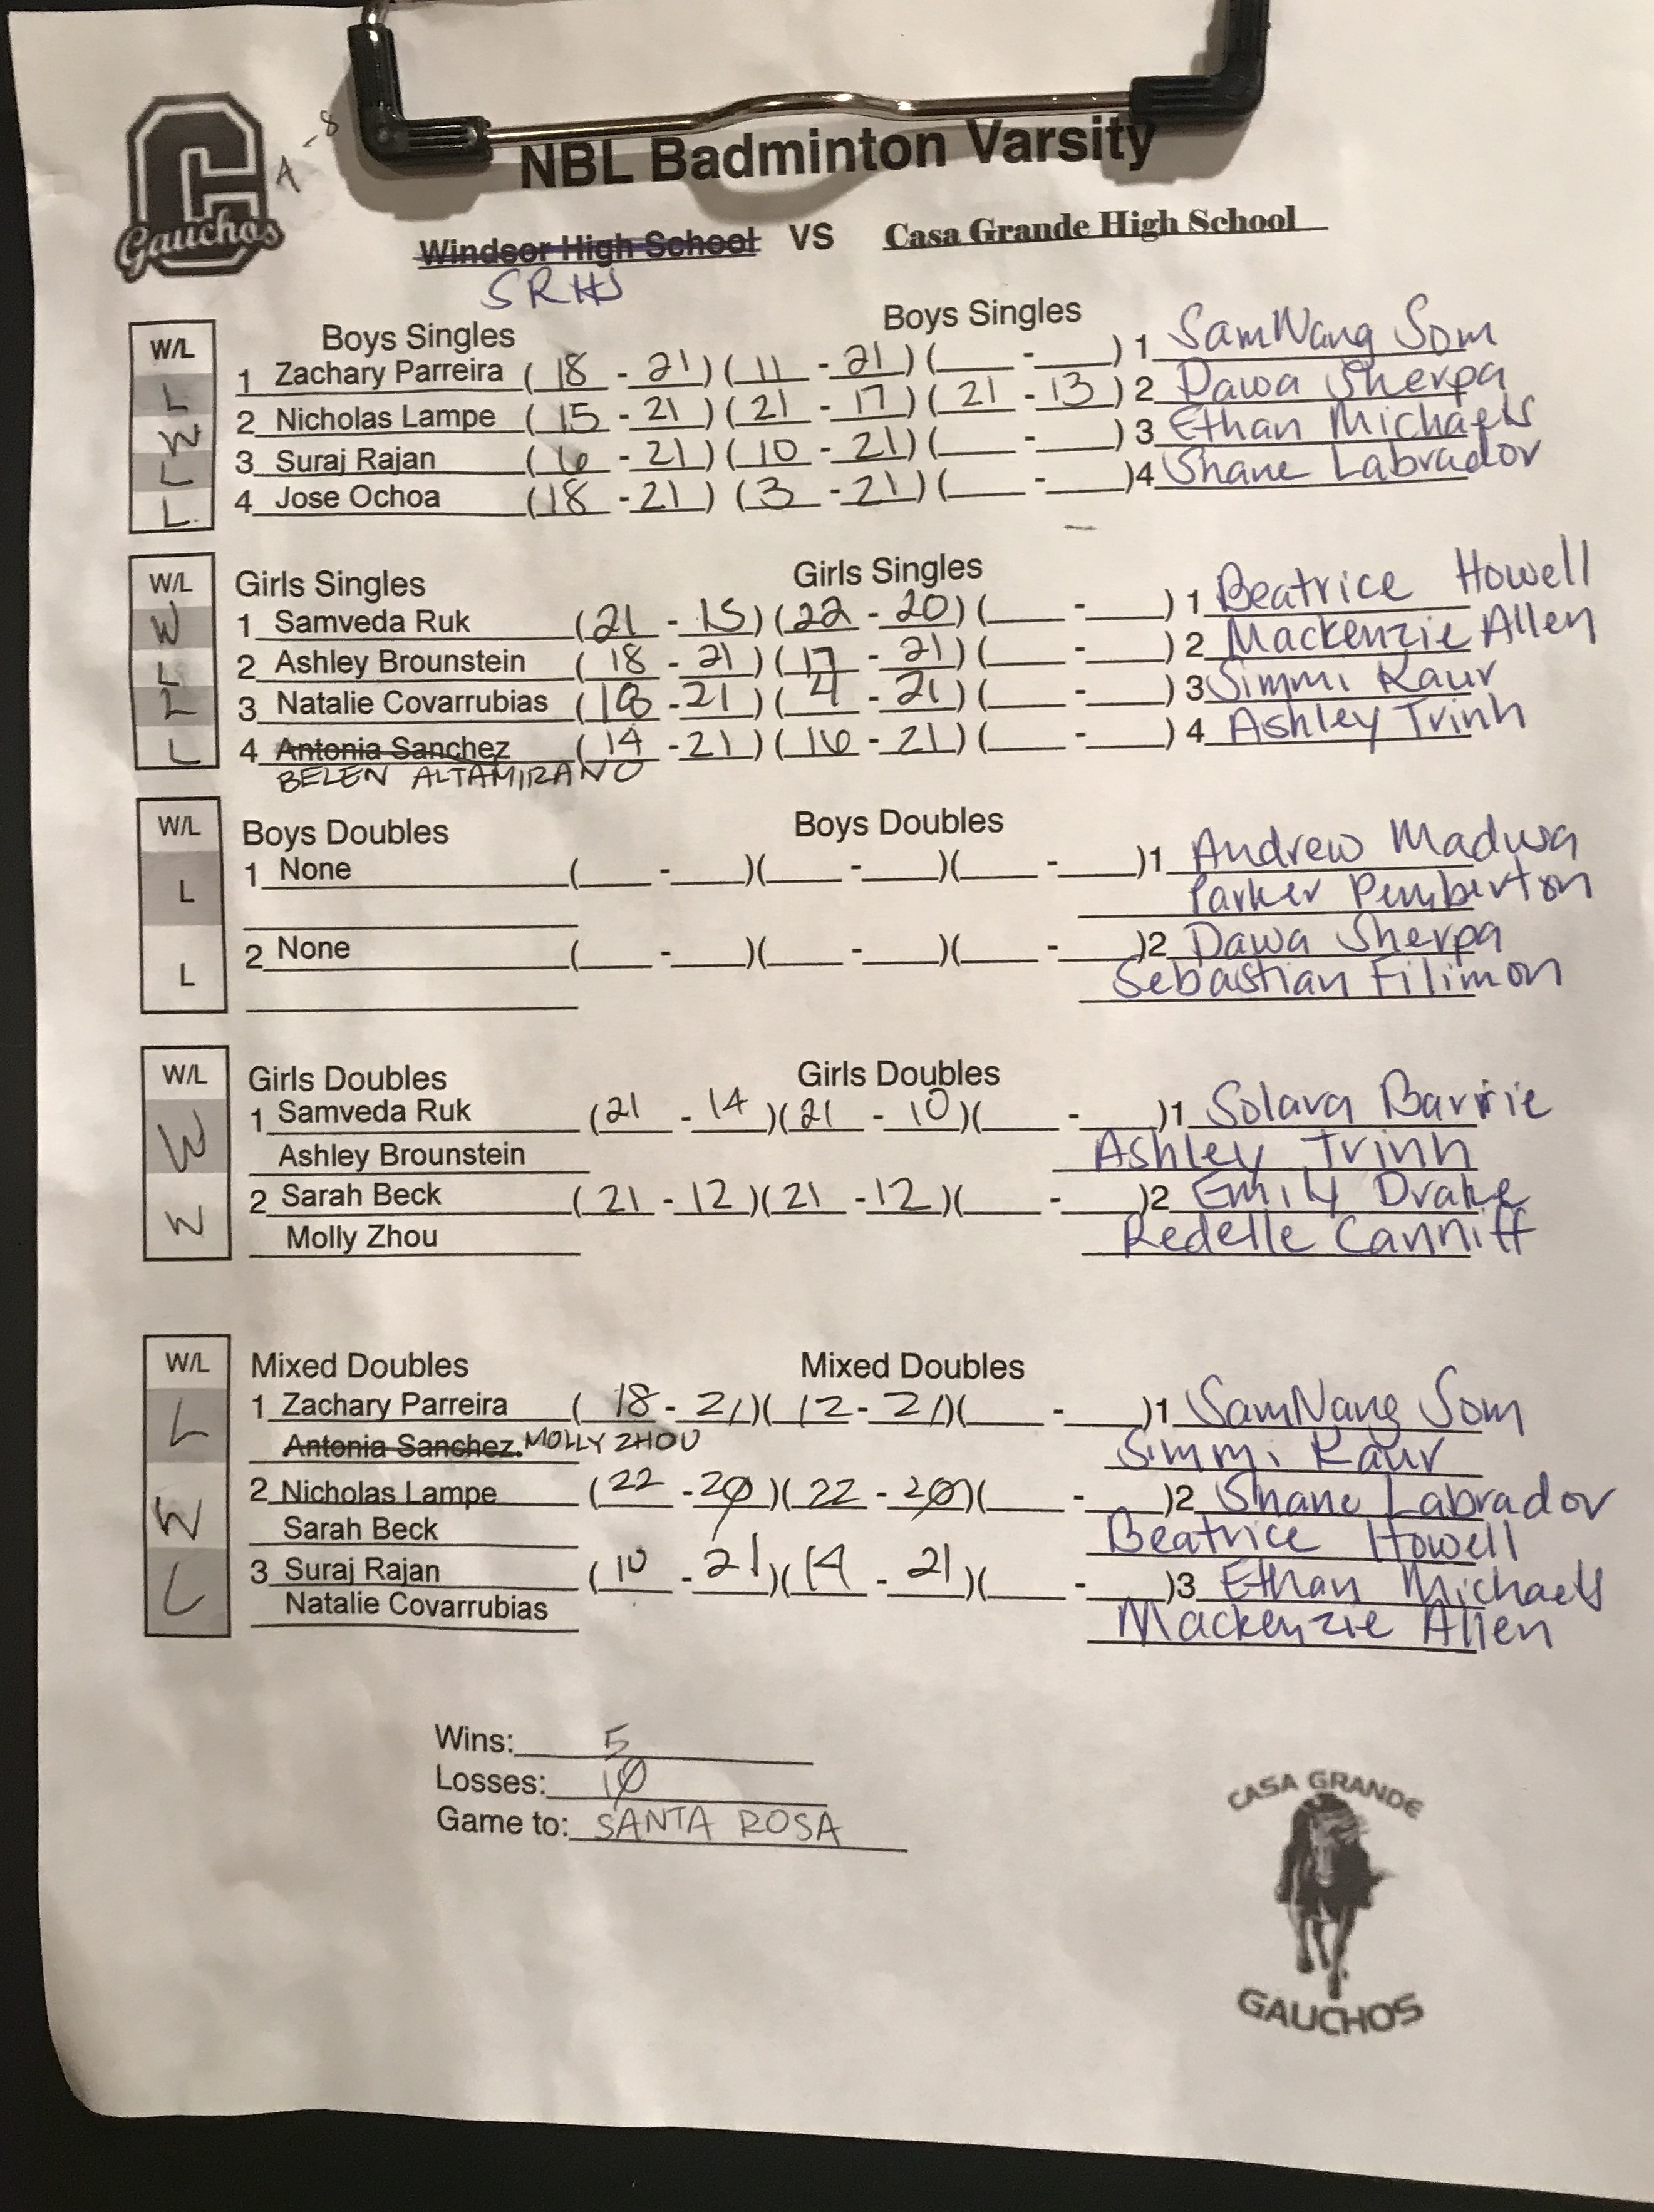 NBL Badminton Varsity
Gauchos
Windsor High School VS Casa Grande High School
SRHS
W/L Boys Singles Boys Singles
L 1 Zachary Parreira (18 - 21)(11 - 21)(___-___) 1 SamNang Som
W 2 Nicholas Lampe (15 - 21)(21 - 17)(21 - 13) 2 Dawa Sherpa
L 3 Suraj Rajan (6 - 21)(10 - 21)(___-___) 3 Ethan Michaels
L 4 Jose Ochoa (18 - 21)(3 - 21)(___-___) 4 Shane Labrador
W/L Girls Singles Girls Singles
W 1 Samveda Ruk (21 - 15)(22 - 20)(___-___) 1 Beatrice Howell
L 2 Ashley Brounstein (18 - 21)(17 - 21)(___-___) 2 Mackenzie Allen
L 3 Natalie Covarrubias (18 - 21)(4 - 21)(___-___) 3 Simmi Kaur
L 4 Antonia Sanchez (14 - 21)(16 - 21)(___-___) 4 Ashley Trinh
BELEN ALTAMIRANO
W/L Boys Doubles Boys Doubles
L 1 None (___-___)(___-___)(___-___)1 Andrew Madura
Parker Pemberton
L 2 None (___-___)(___-___)(___-___)2 Dawa Sherpa
Sebastian Filimon
W/L Girls Doubles Girls Doubles
W 1 Samveda Ruk (21 - 14)(21 - 10)(___-___)1 Solara Barrie
Ashley Brounstein Ashley Trinh
W 2 Sarah Beck (21 - 12)(21 - 12)(___-___)2 Emily Drake
Molly Zhou Redelle Canniff
W/L Mixed Doubles Mixed Doubles
L 1 Zachary Parreira (18 - 21)(12 - 21)(___-___)1 SamNang Som
Antonia Sanchez. MOLLY ZHOU Simmi Kaur
W 2 Nicholas Lampe (22 - 20)(22 - 20)(___-___)2 Shane Labrador
Sarah Beck Beatrice Howell
L 3 Suraj Rajan (10 - 21)(14 - 21)(___-___)3 Ethan Michaels
Natalie Covarrubias Mackenzie Allen
Wins: 5
Losses: 10
Game to: SANTA ROSA
CASA GRANDE
GAUCHOS